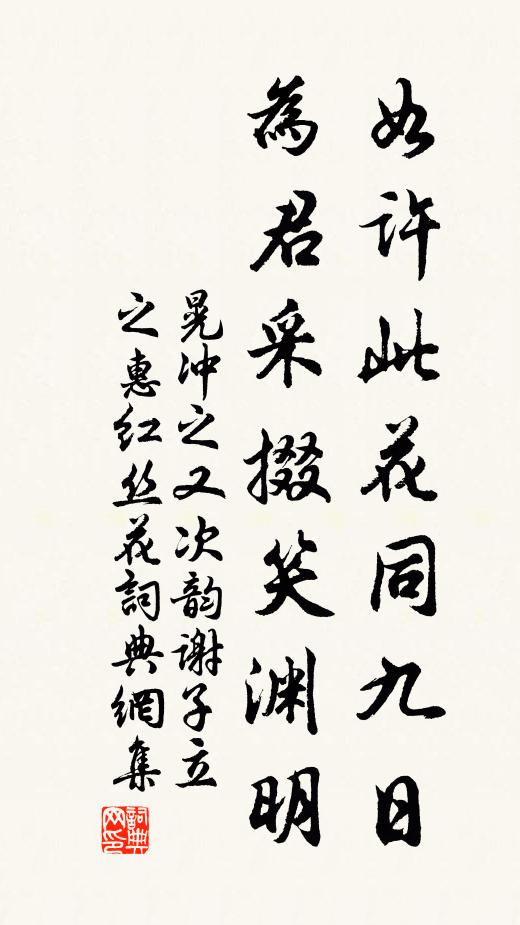 如许此花同九日
為君采掇笑渊明
晃冲之又次韵谢子立
之惠红丝花詞典網集
詞典
网印